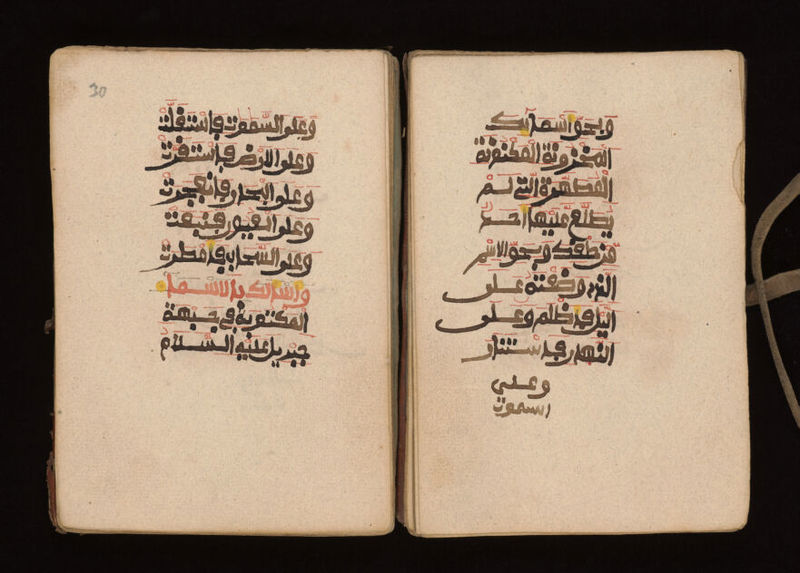 وبحق اسمايك
المخزونة المكنونة
المطهرة التي لم
يطلع عليها احد
من خلقك وبحق الاسم
الذي وضعته على
اليل فاظلم وعلى
النهار فاستنار
وعلى
السموت
30
وعلى السموت فاستقلت
وعلى الارض فاستقرت
وعلى البحار فانفجرت
وعلى العيون فنبعت
وعلى السحاب فامطرت
واسالك بالاسماء
المكتوبة في جبهة
جبريل عليه السلام